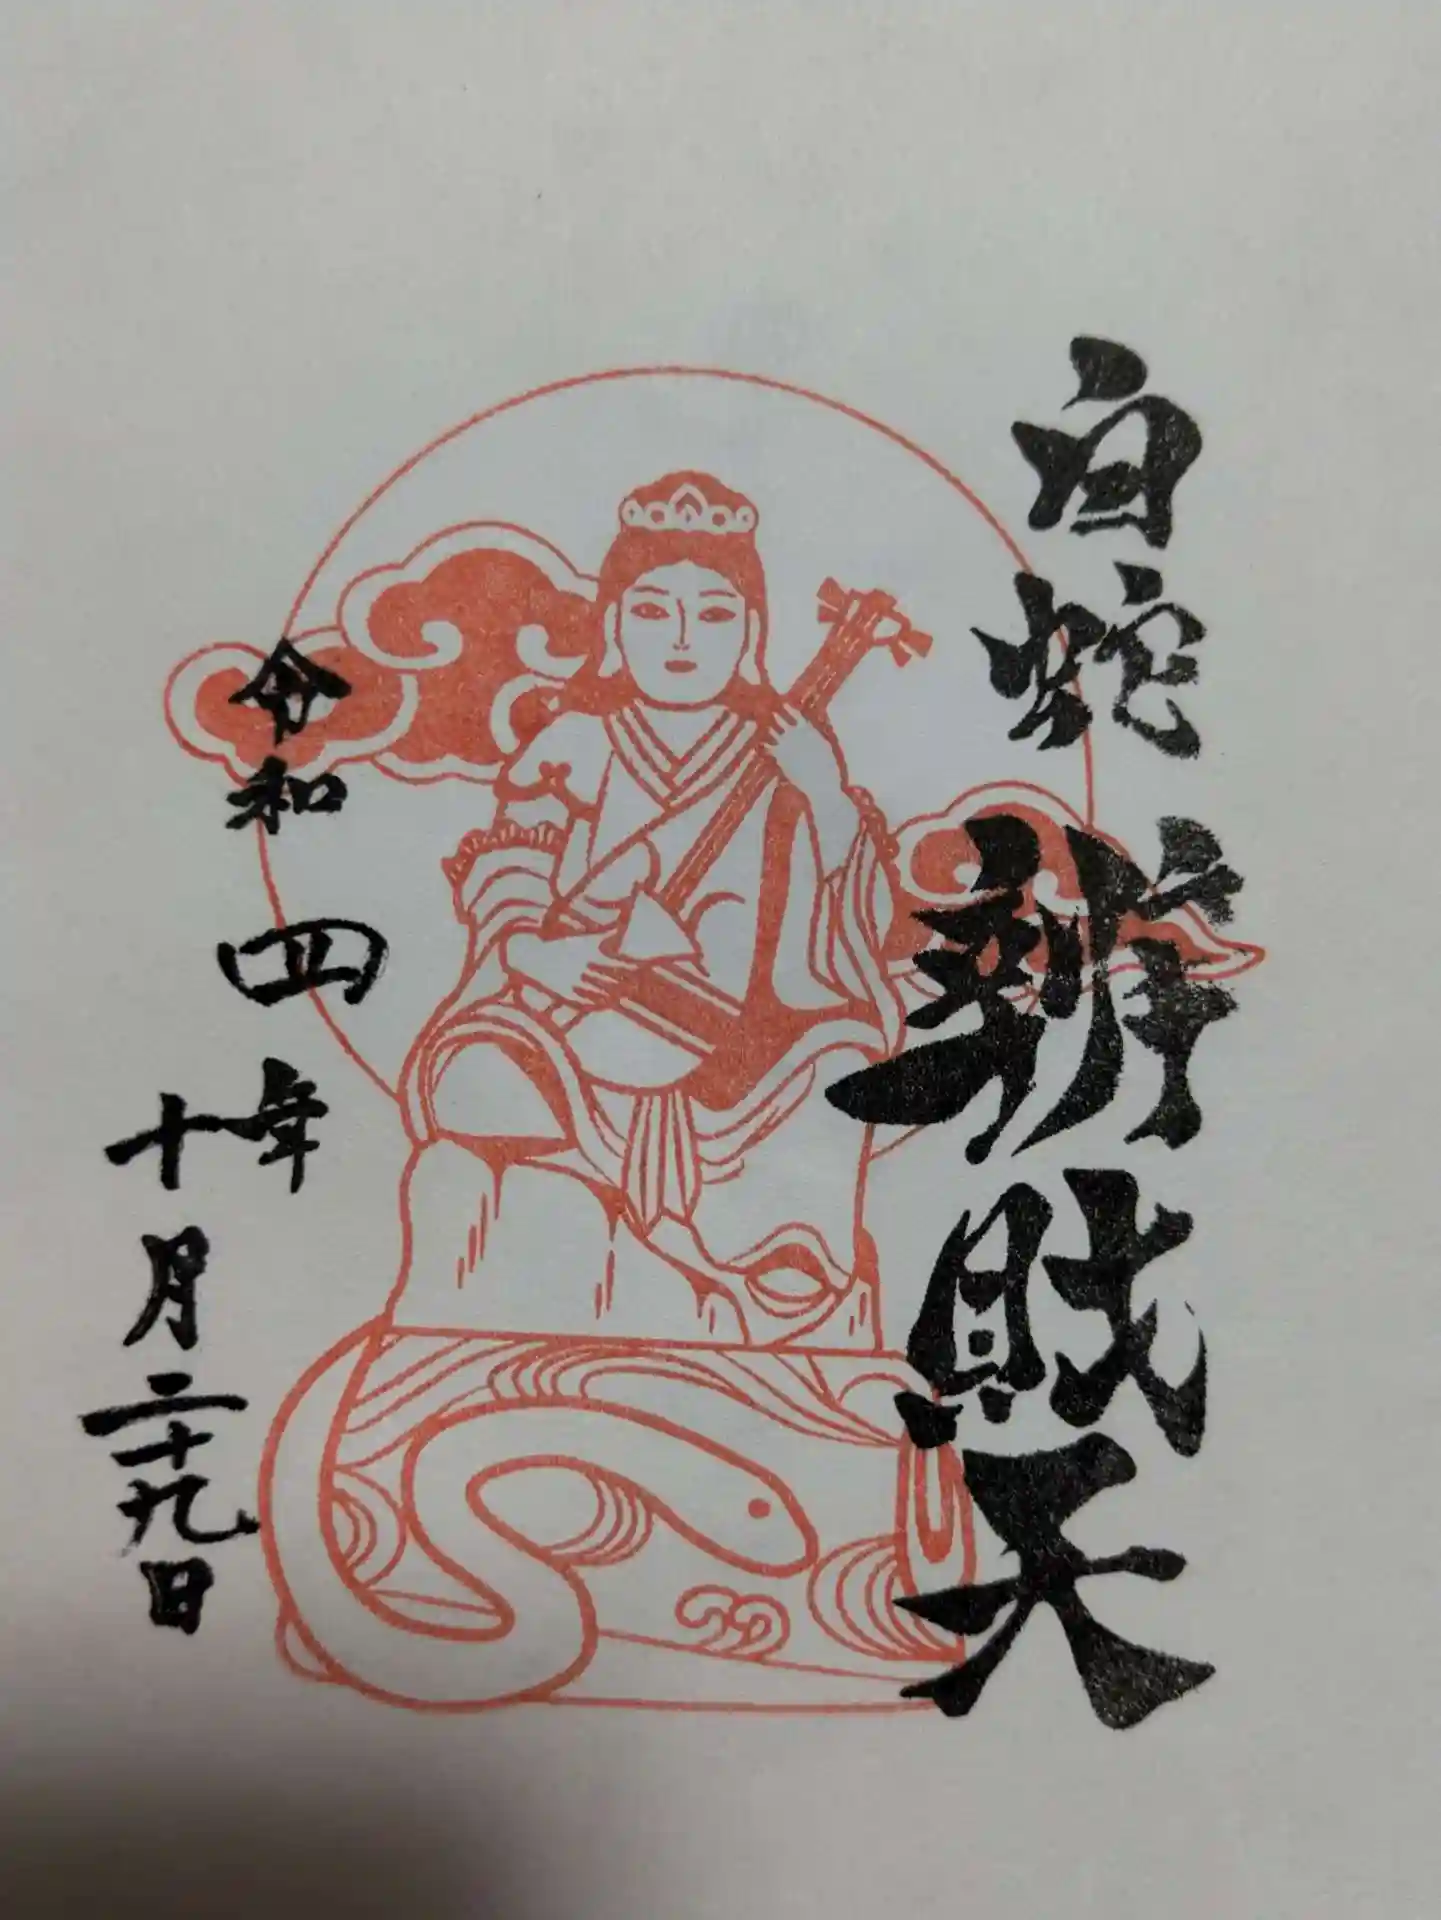 白蛇辨財天
令和四年
十月二十九日